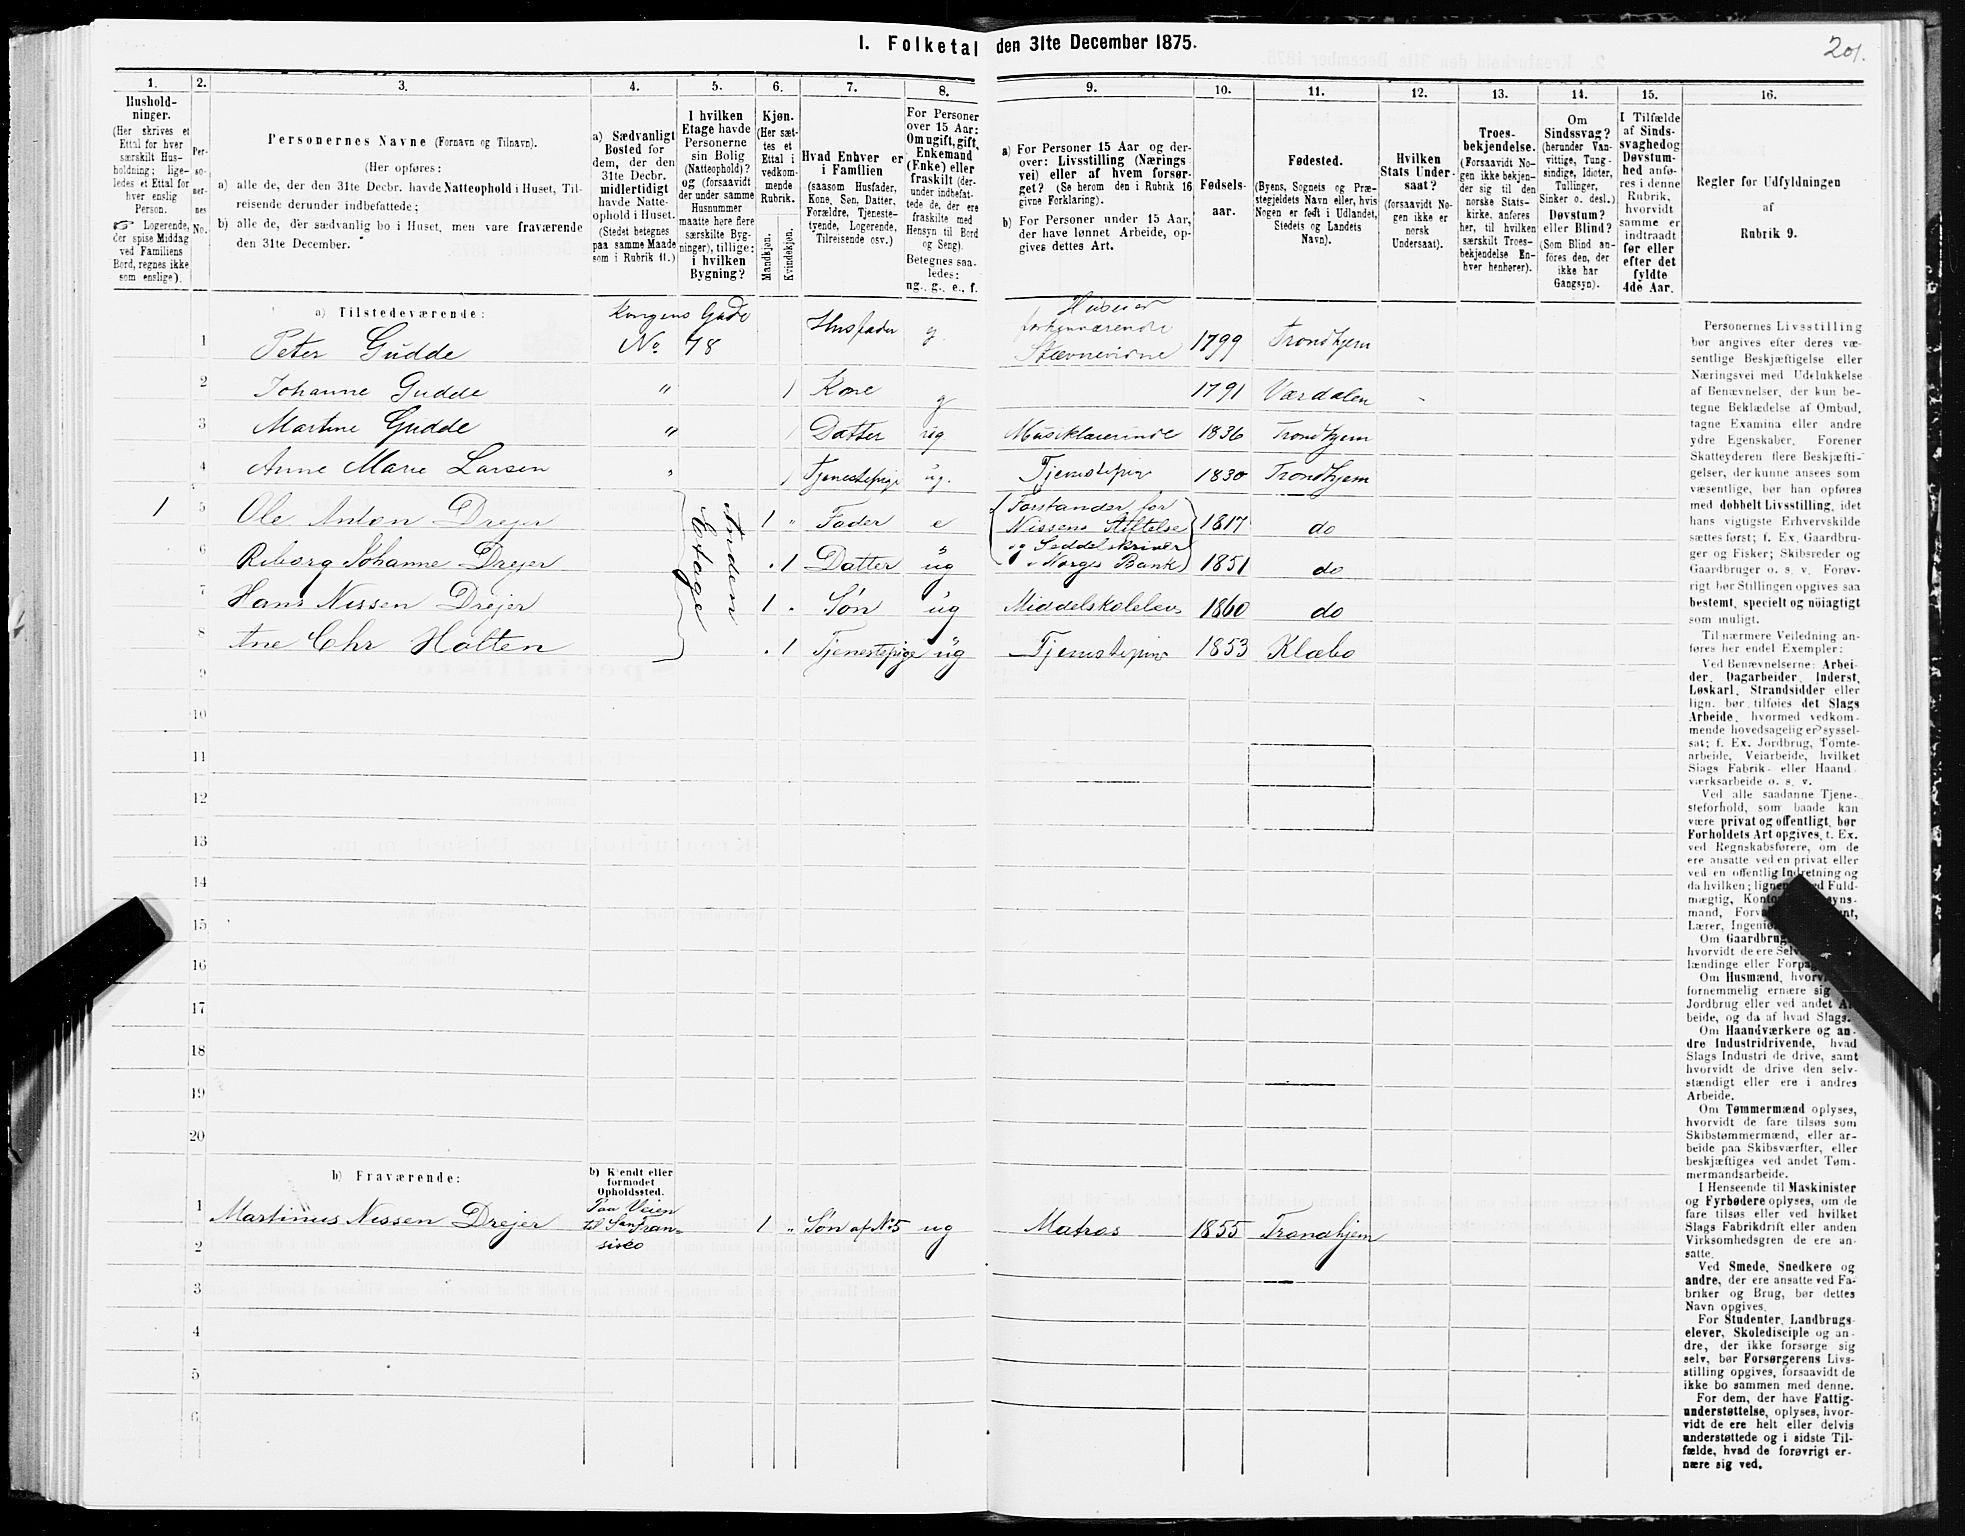 I. Folketal den 31te December 1875.
201.
1.
2.
3.
4.
5.
6.
7.
8.
9.
10.
11.
12.
13.
14.
15.
16.
Hushold-
ninger.
(Her skrives et
Ettal for hver
særskilt Hus-
holdning; lige-
ledes et Ettal for
hver enslig
Person.
☞ Logerende,
der spise Middag
ved Familiens
Bord, regnes ikke
som enslige).
Per-
so-
ner-
nes
No.
Personernes Navne (Fornavn og Tilnavn).
(Her opføres:
a) alle de, der den 31te Decbr. havde Natteophold i Huset, Til-
reisende derunder indbefattede;
b) alle de, der sædvanlig bo i Huset, men vare fraværende
den 31te December.
a) Sædvanligt
Bosted for
dem, der den
31te Decbr.
midlertidigt
havde Natte-
ophold i Huset.
(Stedet betegnes
paa samme Maade
som i Rubrik 11.)
I hvilken
Etage havde
Personerne
sin Bolig
(Natteophold)?
og (forsaavidt
der under samme
Husnummer
maatte høre flere
særskilte Byg-
ninger), tillige:
i hvilken
Bygning?
Kjøn.
(Her sæt-
tes et
Ettal i
vedkom-
mende
Rubrik.
Mandkjøn.
Kvindekjøn.
Hvad Enhver er
i Familien
(saasom Husfader,
Kone, Søn, Datter,
Forældre, Tjeneste-
tyende, Logerende,
Tilreisende osv.)
For Personer
over 15 Aar:
Om ugift, gift,
Enkemand
(Enke) eller
fraskilt (der-
under indbefat-
tede de, der ere
fraskilte med
Hensyn til Bord
og Seng).
Betegnes saa-
ledes:
ug., g., e., f.
a) For Personer 15 Aar og der-
over: Livsstilling (Nærings
vei) eller af hvem forsør-
get? (Se herom den i Rubrik 16
givne Forklaring).
b) For Personer under 15 Aar,
der have lønnet Arbeide, op-
gives dettes Art.
Fødsels-
aar.
Fødested.
(Byens, Sognets og Præ-
stegjeldets Navn eller, hvis
Nogen er født i Udlandet,
Stedets og Landets
Navn).
Hvilken
Stats Under-
saat?
(forsaavidt No-
gen ikke er
norsk
Undersaat).
Troes-
bekjendelse.
(Forsaavidt No-
gen ikke bekjen-
der sig til den
norske Stats-
kirke, anføres
her, til hvilken
særskilt Troes-
bekjendelse En-
hver henhører).
Om
Sindssvag?
(herunder Van-
vittige, Tung-
sindige, Idioter,
Tullinger,
Sinker o. desl.)
Døvstum?
eller Blind?
(Som Blind an-
føres den, der
ikke har
Gangsyn).
I Tilfælde
af Sinds-
svaghed og
Døvstum-
hed anfø-
res i denne
Rubrik,
hvorvidt
samme er
indtraadt
før eller
efter det
fyldte
4de Aar.
Regler for Udfyldningen
af
Rubrik 9.
a) Tilstedeværende:
1 Peter Gudde Kongens Gade No 78 Husfader g. Huseier forhenværende Stævnevidne 1799 Trondhjem
2 Johanne Gudde " 1 Kone g 1791 Værdalen
3 Martine Gudde " 1 Datter ug Musiklærerinde 1836 Trondhjem
4 Anne Marie Larsen " 1 Tjenestepige ug. Tjenestepige 1830 Trondhjem
1 5 Ole Anton Drejer Anden Etage 1 " Fader e Forstander for Nissens Stiftelse og Seddelskriver i Norges Bank 1817 do
6 Riborg Johanne Drejer " 1 Datter ug 1851 do
7 Hans Nissen Drejer 1 " Søn ug Middelskoleelev 1860 do
8 Ane Chr Holten " 1 Tjenestepige ug Tjenestepige 1853 Klæbo
9
10
11
12
13
14
15
16
17
18
19
20
b) Fraværende:
b) Kjendt eller
formodet
Opholdssted.
1 Martinus Nissen Drejer Paa Veien til San Fransisco 1 " Søn af No 5 ug Matros 1855 Trondhjem
2
3
4
5
6
Personernes Livsstilling
bør angives efter deres væ-
sentlige Beskjæftigelse eller
Næringsvei med Udelukkelse
af Benævnelser, der kun be-
tegne Beklædelse af Ombud,
tagne Examina eller andre
ydre Egenskaber. Forener
Skatteyderen flere Beskjæfti-
gelser, der kunne ansees som
væsentlige, bør han opføres
med dobbelt Livsstilling, idet
hans vigtigste Erhvervskilde
sættes først; f. Ex. Gaardbru-
ger og Fisker; Skibsreder og
Gaardbruger o. s. v. Forøv-
rigt bør Stillingen opgives saa
bestemt, specielt og nøiagtigt
som muligt.
Til nærmere Veiledning an-
føres her endel Exempler:
Ved Benævnelserne: Arbei-
der, Dagarbeider, Inderst,
Løskarl, Strandsidder eller
lign. bør tilføies det Slags
Arbeide, hvormed vedkom-
mende hovedsagelig er syssel-
sat; f. Ex. Jordbrug, Tomte-
arbeide, Veiarbeide, hvilket
Slags Fabrik- eller Haand-
værksarbeide o. s. v.
Ved alle saadanne Tjene-
steforhold, som baade kan
være privat og offentligt, bør
Forholdets Art opgives, t. Ex.
ved Regnskabsførere, om de
ere ansatte ved en privat eller
ved en offentlig Indretning og
da hvilken;
mægtig,
mand,
Lærer,
Om
hvorvidt de ere
lændinge eller
Om Husmænd,
fornemmelig ernære sig
Jordbrug eller ved andet
beide, og da af hvad Slags.
Om Haandværkere og an-
dre Industridrivende, hvad
Slags Industri de drive, samt
hvorvidt de drive den selv-
stændigt eller ere i andres
Arbeide.
Om Tømmermænd oplyses,
hvorvidt de fare tilsøs som
Skibstømmermænd, eller ar-
beide paa Skibsværfter, eller
beskjæftiges ved andet Tøm-
mermandsarbeide.
I Henseende til Maskinister
og Fyrbødere oplyses, om de
fare tilsøs eller ved hvilket
Slags Fabrikdrift eller anden
Virksomhedsgren de ere an-
satte.
Ved Smede, Snedkere og
andre, der ere ansatte ved Fa-
briker og Brug, bør dettes
Navn opgives.
For Studenter, Landbrugs-
elever, Skoledisciple og an-
dre, der ikke forsørge sig
selv, bør Forsørgerens Livs-
stilling opgives, forsaavidt de
ikke bo sammen med denne.
For dem, der have Fattig-
understøttelse, oplyses, hvor-
vidt de ere helt eller delvis
understøttede og i sidste Til-
fælde, hvad de forøvrigt er-
nære sig ved.